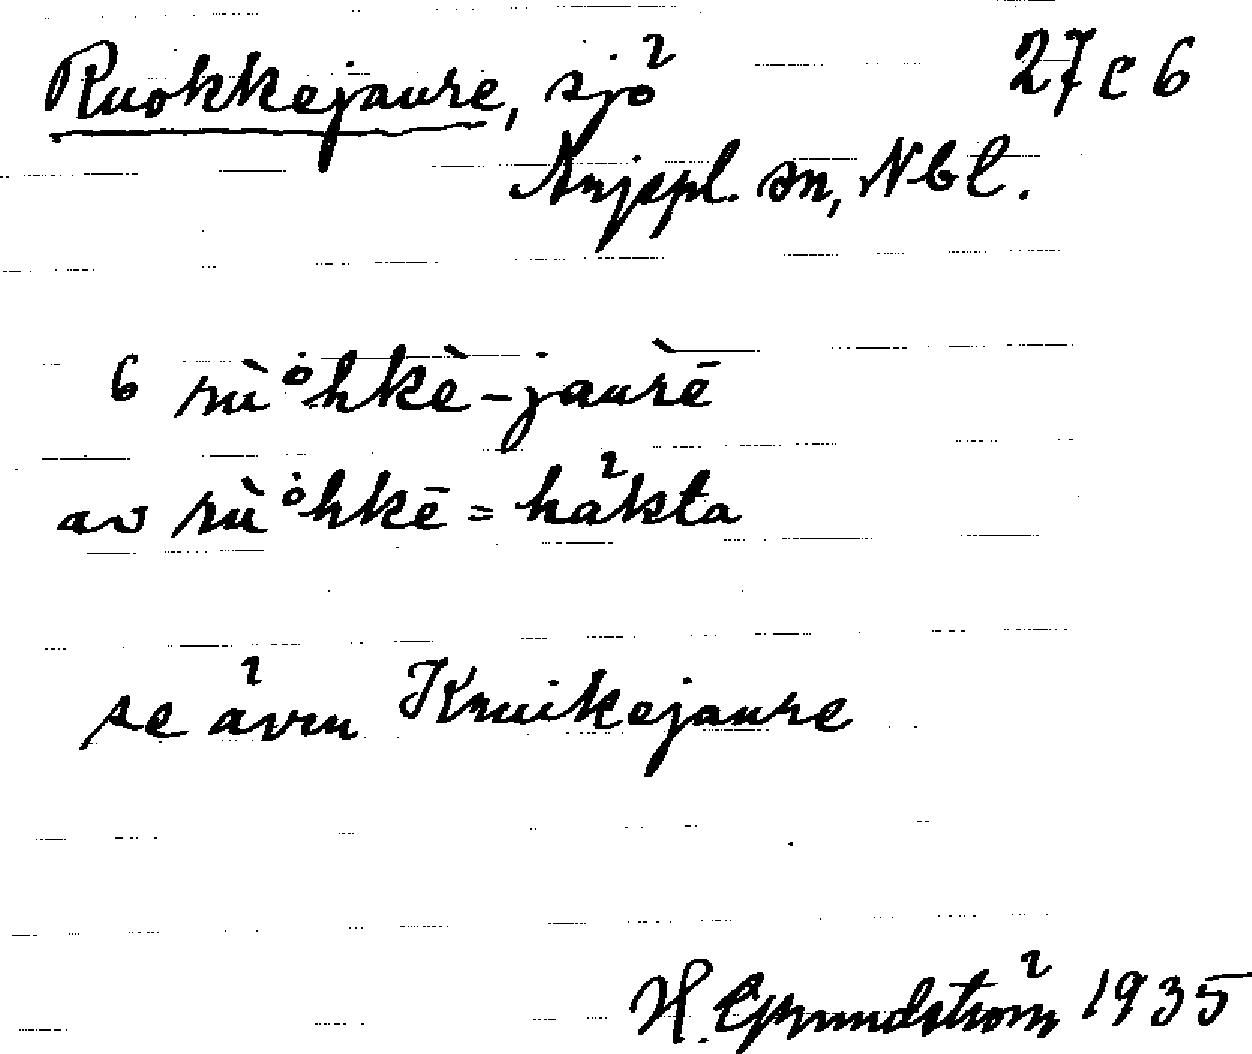 Ruokkejaure, sjö 27 c 6
Arjepl. sn, Nbl.
6 rùˈåhkè-jaùrē
av rùˈåhkē = häkta
se även Kruikejaure
H. Grundström 1935